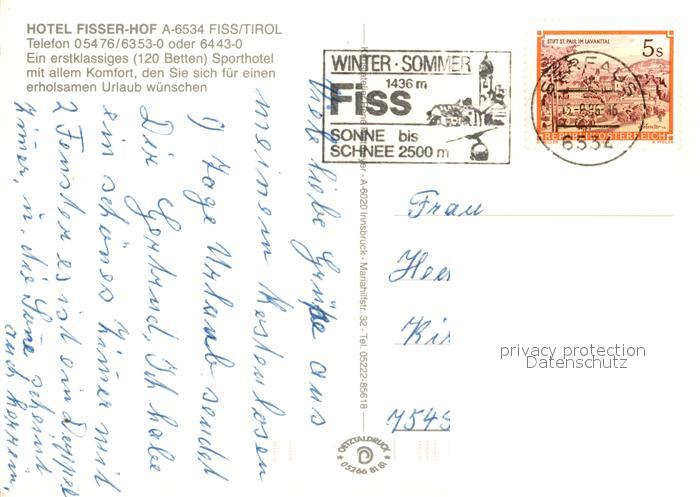 HOTEL FISSER-HOF A-6534 FISS/TIROL
Telefon 05476/6353-0 oder 6443-0
Ein erstklassiges (120 Betten) Sporthotel
mit allem Komfort, den Sie sich für einen
erholsamen Urlaub wünschen
WINTER · SOMMER
1436 m
Fiss
SONNE bis
SCHNEE 2500 m
STIFT ST. PAUL IM LAVANTTAL
5 S
REPUBLIK ÖSTERREICH
6534
Viele liebe Grüße aus
meinem kostenlosen
9 Tage Urlaub sendet
Dir Gertrud, Ich habe
ein schönes Zimmer mit
2 Fenster es ist ein Doppel
Zimer, u. die Sone scheint
auch herrein,
A-6020 Innsbruck · Mariahilfstr. 32 · Tel. 05222-85618
Frau
Hee
Kir
7545
privacy protection
Datenschutz
ÖTZTALDRUCK
05266 81 81